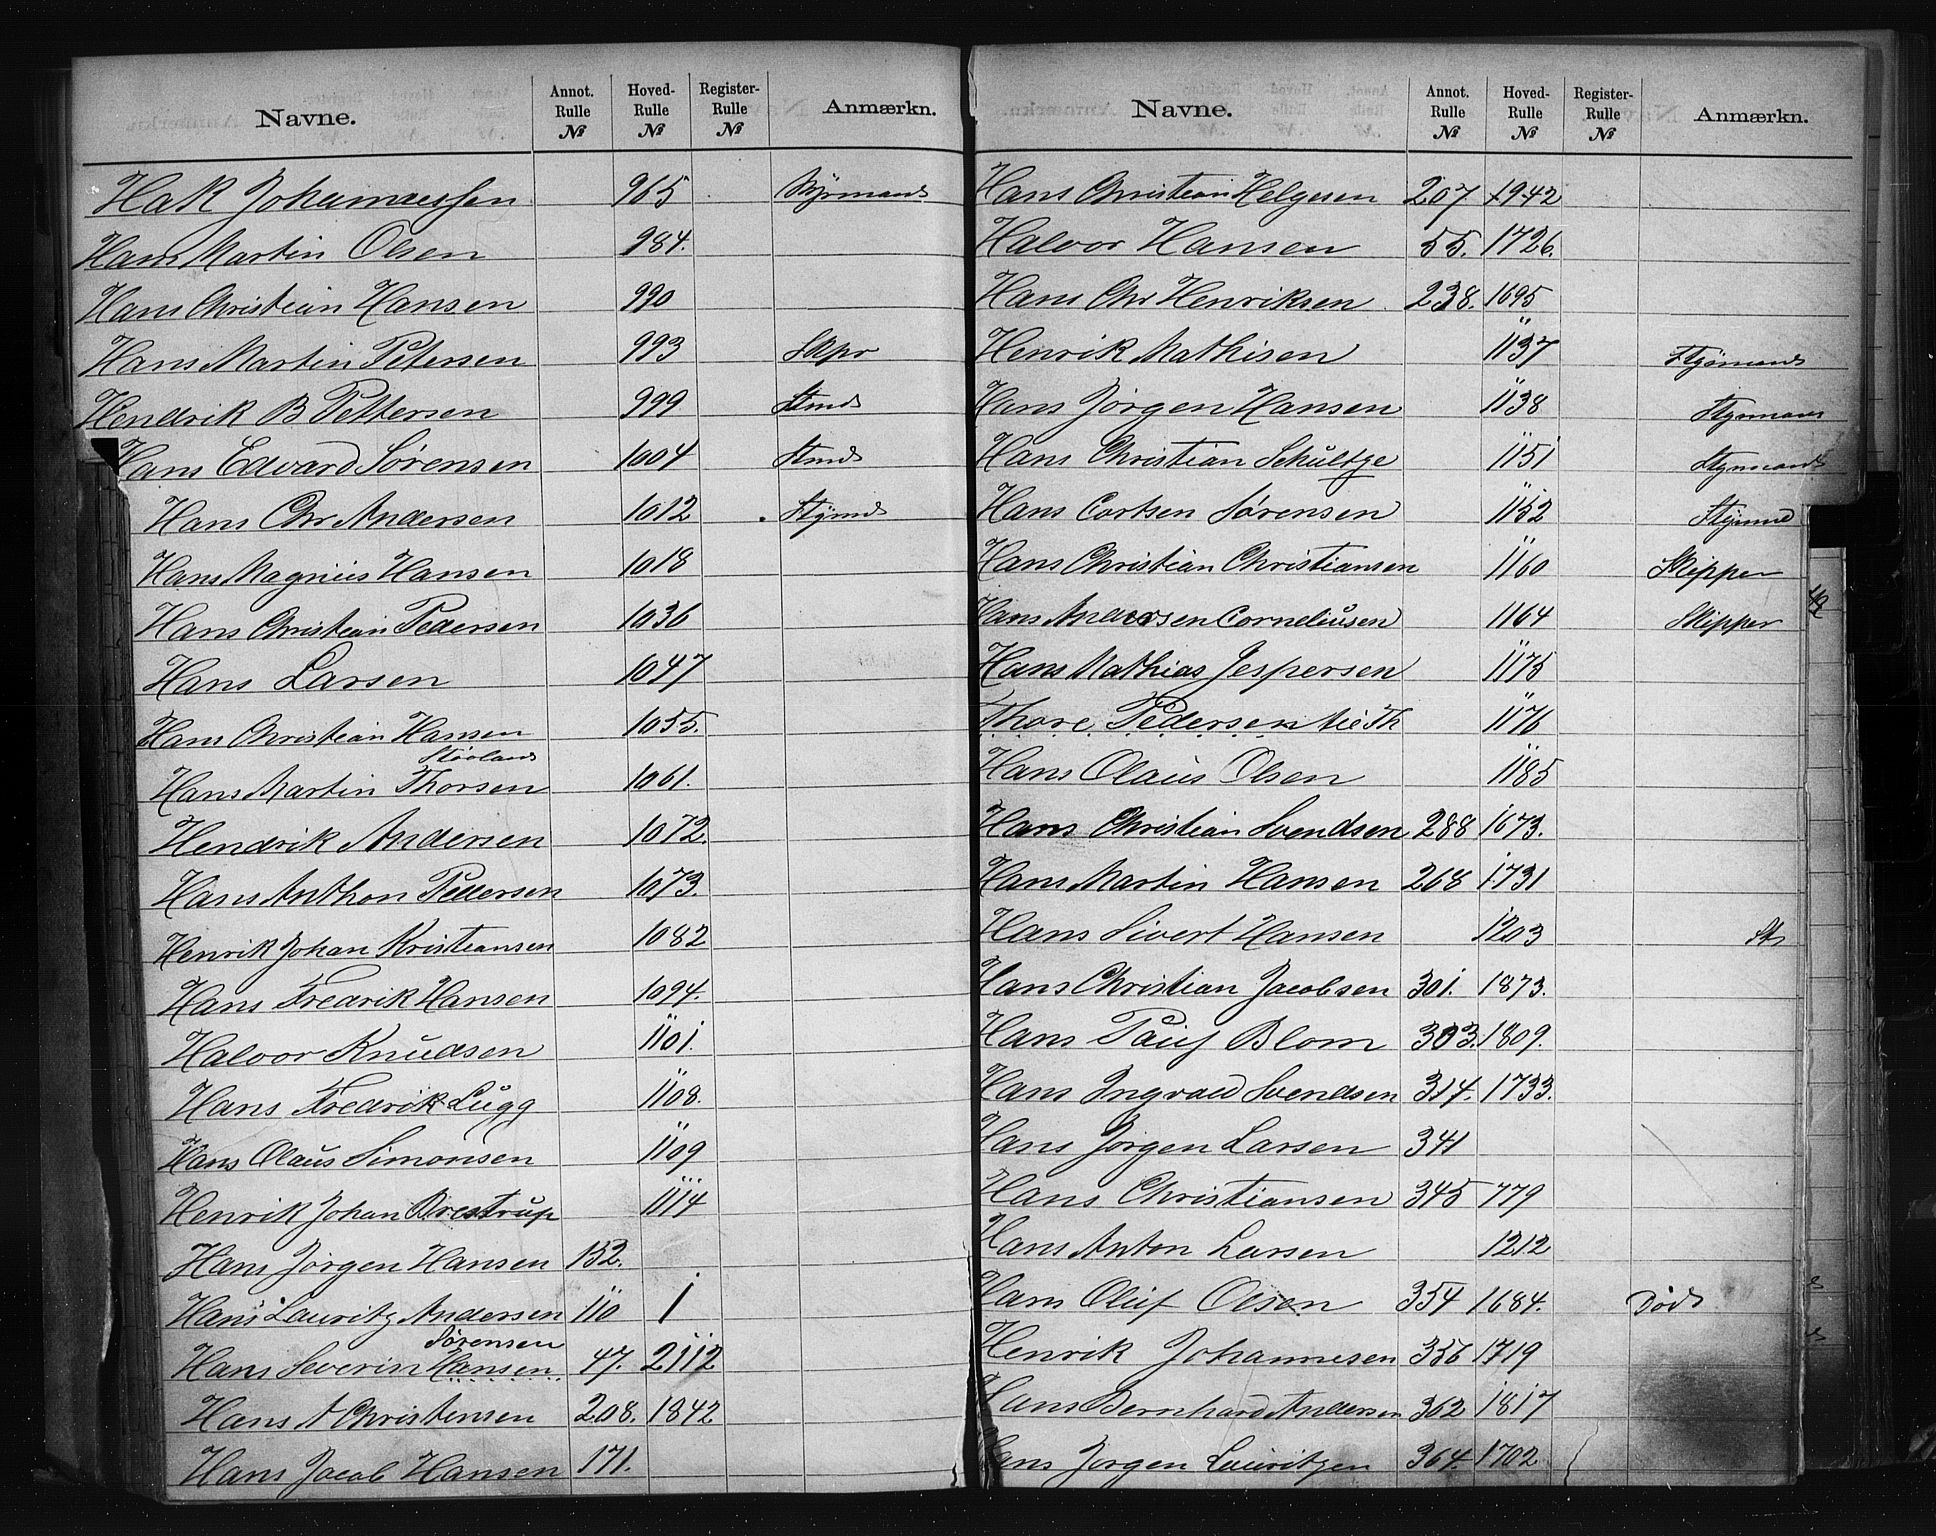 Navne. Annot. Rulle № Hoved- Rulle № Register- Rulle № Anmærkn.
Hak Johannessen 965 Styrmand
Hans Martin Olsen 984.
Hans Christian Hansen 990
Hans Martin Petersen 993
Hendrik B Pettersen 999 Stmd
Hans Edvard Sørensen 1004 Stmd
Hans Chr Andersen 1012 Stymd
Hans Magnus Hansen 1018
Hans Christian Pedersen 1036
Hans Larsen 1047
Hans Christian Hansen 1055.
Støoland
Hans Martin Thorsen 1061.
Hendrik Andersen 1072.
Hans Anthon Pedersen 1073.
Henrik Johan Kristiansen 1082
Hans Fredrik Hansen 1094.
Halvor Knudsen 1101.
Hans Fredrik Lugg 1108.
Hans Olaus Simonsen 1109
Henrik Johan Brestrup 1114
Hans Jørgen Hansen 152.
Hans Lauritz Andersen 110 1
Sørensen
Hans Severin Hansen 47. 2112
Hans A Christensen 208. 1842
Hans Jacob Hansen 171.
Navne. Annot. Rulle № Hoved- Rulle № Register- Rulle № Anmærkn.
Hans Christian Helgesen 207. 1942
Halvor Hansen 55. 1726.
Hans Chr Henriksen 238. 1695
Henrik Mathisen 1137 Styrmand
Hans Jørgen Hansen 1138 Styrmand
Hans Christian Schultze 1151 Styrmand
Hans Cortsen Sørensen 1152 Stymd
Hans Christian Christiansen 1160 Skipper
Hans Andersen Corneliusen 1164 Skipper
Hans Mathias Jespersen 1175
Thore Pedersen 1176
Hans Olaus Olsen 1185
Hans Christian Svendsen 288 1673.
Hans Martin Hansen 268 1731
Hans Sivert Hansen 1203 St
Hans Christian Jacobsen 301. 1873.
Hans Blom 303. 1809.
Hans Ingvald Svendsen 314. 1733.
Hans Jørgen Larsen 341
Hans Christiansen 345 779
Hans Anton Larsen 1212
Hans Oluf Olsen 354 1684. Død
Henrik Johannesen 356 1719
Hans Bernhard Andersen 362 1817
Hans Jørgen Lauritzen 364. 1702